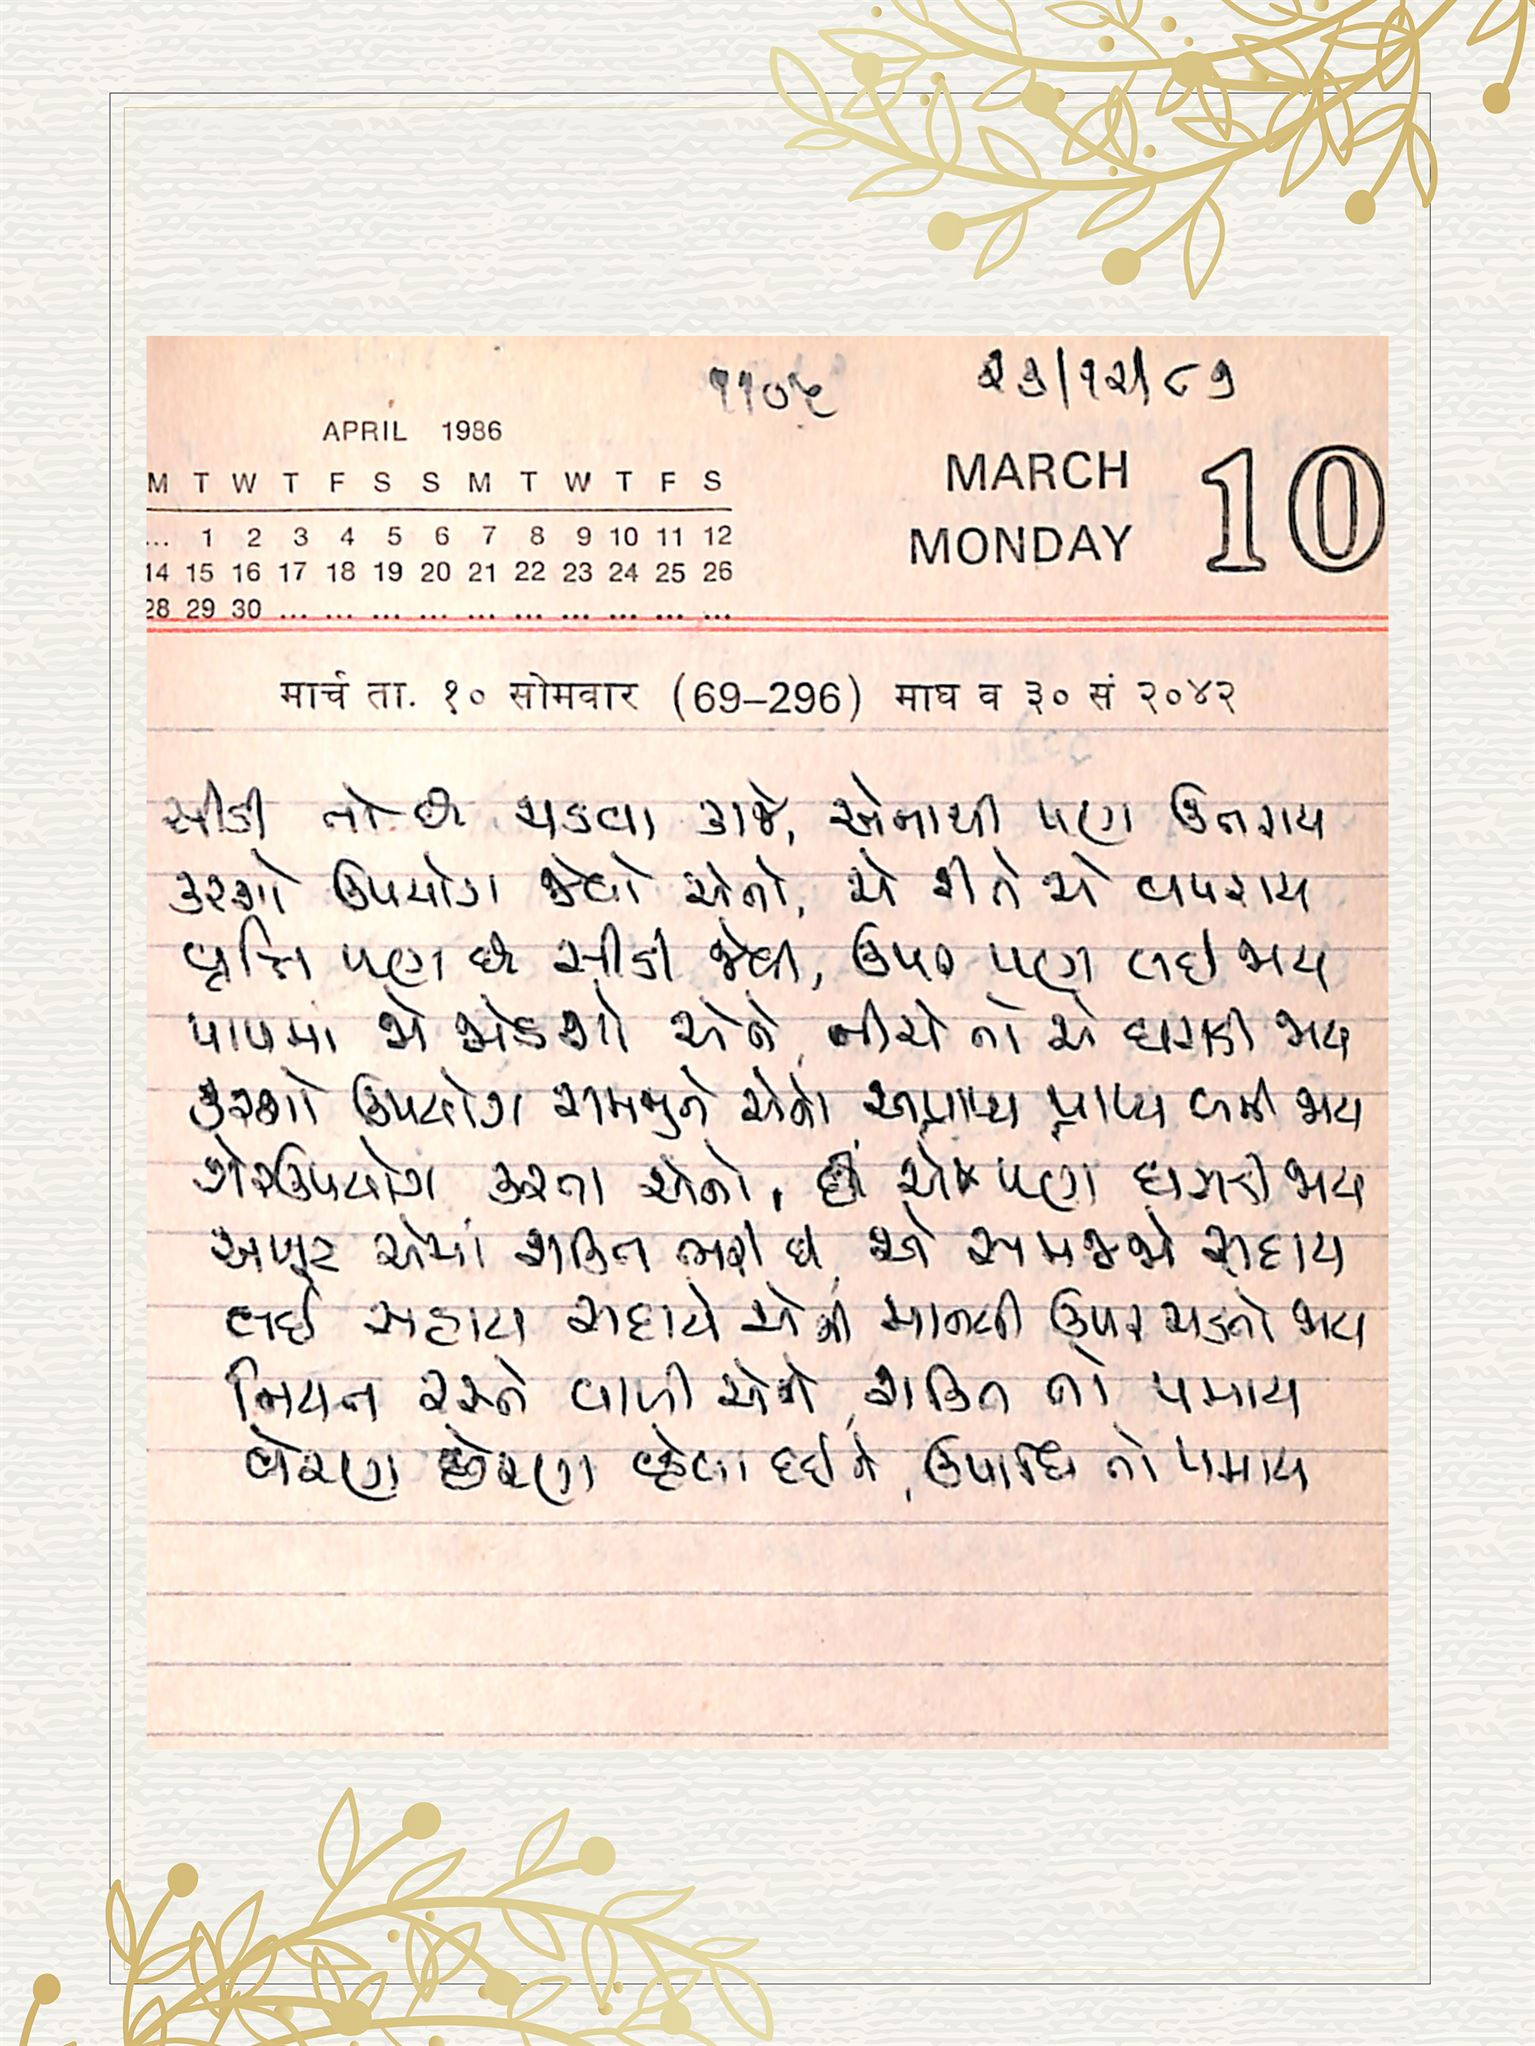 ૧૧૦૬
૨૩/૧૨/૮૭
APRIL 1986
M T W T F S S M T W T F S
... 1 2 3 4 5 6 7 8 9 10 11 12
14 15 16 17 18 19 20 21 22 23 24 25 26
28 29 30 ... ... ... ... ... ... ... ... ... ...
MARCH
MONDAY
10
मार्च ता. १० सोमवार (69–296) माघ व ३० सं २०४२
સીડી તો છે ચડવા કાજે, એનાથી પણ ઉતરાય
કરશો ઉપયોગ જેવો એનો, એ રીતે એ વપરાય
વૃત્તિ પણ છે સીડી જેવી, ઉપર પણ લઈ જાય
પાપમાં જો જોડશો એને, નીચે તો એ ઘસડી જાય
કરશો ઉપયોગ સમજીને એનો અપ્રાપ્ય પ્રાપ્ય બની જાય
ગેરઉપયોગ કરતા એનો, એ પણ જાય
અખૂટ એમાં શક્તિ ભરી છે, એ સમજજો સદાય
લઈ સહાય સદાયે એની માનવી ઉપર ચડતો જાય
નિયત રસ્તે વાળી એને, શક્તિ તો પમાય
વેરણ છેરણ વ્હેવા દઈને, ઉપાધિ તો પમાય